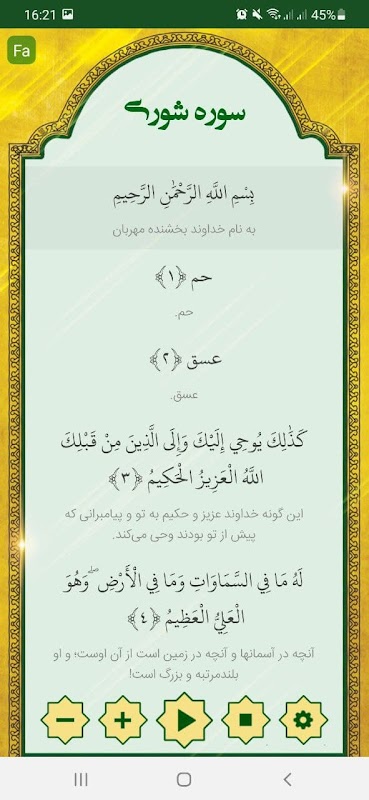 16:21
45%
Fa
سوره شوری
بِسْمِ اللَّهِ الرَّحْمَٰنِ الرَّحِيمِ
به نام خداوند بخشنده مهربان
حم ﴿١﴾
حم.
عسق ﴿٢﴾
عسق.
كَذَٰلِكَ يُوحِي إِلَيْكَ وَإِلَى الَّذِينَ مِنْ قَبْلِكَ
اللَّهُ الْعَزِيزُ الْحَكِيمُ ﴿٣﴾
این گونه خداوند عزیز و حکیم به تو و پیامبرانی که
پیش از تو بودند وحی می‌کند.
لَهُ مَا فِي السَّمَاوَاتِ وَمَا فِي الْأَرْضِ ۖ وَهُوَ
الْعَلِيُّ الْعَظِيمُ ﴿٤﴾
آنچه در آسمانها و آنچه در زمین است از آن اوست؛ و او
بلندمرتبه و بزرگ است!